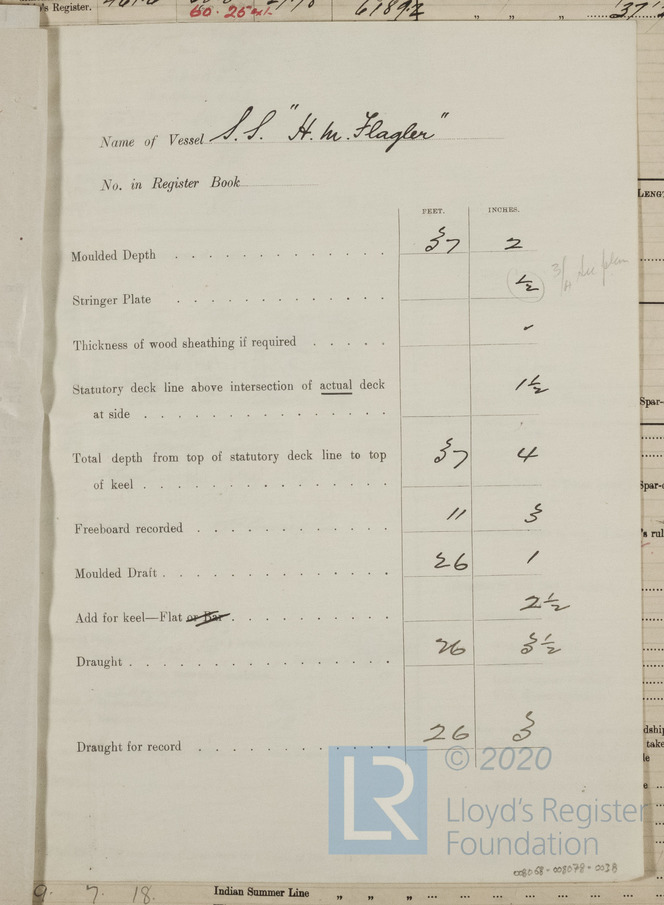 's Register.
60.25
6189.2
„ „ „
Name of Vessel S.S. "H. M. Flagler"
No. in Register Book
FEET. INCHES.
LENGT
Moulded Depth 37 2
3/4 See plan
Stringer Plate ½
Thickness of wood sheathing if required ✓
Statutory deck line above intersection of actual deck 1½
at side
Spar-
Total depth from top of statutory deck line to top 37 4
of keel
Spar-
Freeboard recorded 11 3
's rul
Moulded Draft 26 1
Add for keel—Flat or Bar 2½
Draught 26 3½
Draught for record 26 3
dship
take
LR
© 2020
Lloyd's Register
Foundation
008068-008078-0038
9. 7. 18.
Indian Summer Line „ „ „